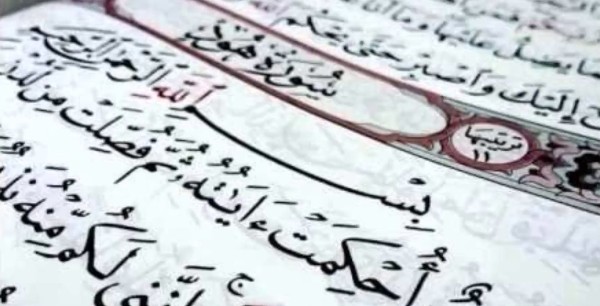 يَضِلُّ عَلَيْهَا وَمَا أَنَا
إِلَيْكَ وَاصْبِرْ حَتَّىٰ يَحْكُمَ
سُورَةُ هُودٍ
ترتيبها ١١
بِسْمِ اللَّهِ الرَّحْمَٰنِ الرَّحِيمِ
أُحْكِمَتْ ءَايَٰتُهُۥ ثُمَّ فُصِّلَتْ مِن لَّدُنْ
إِنَّنِى لَكُم مِّنْهُ